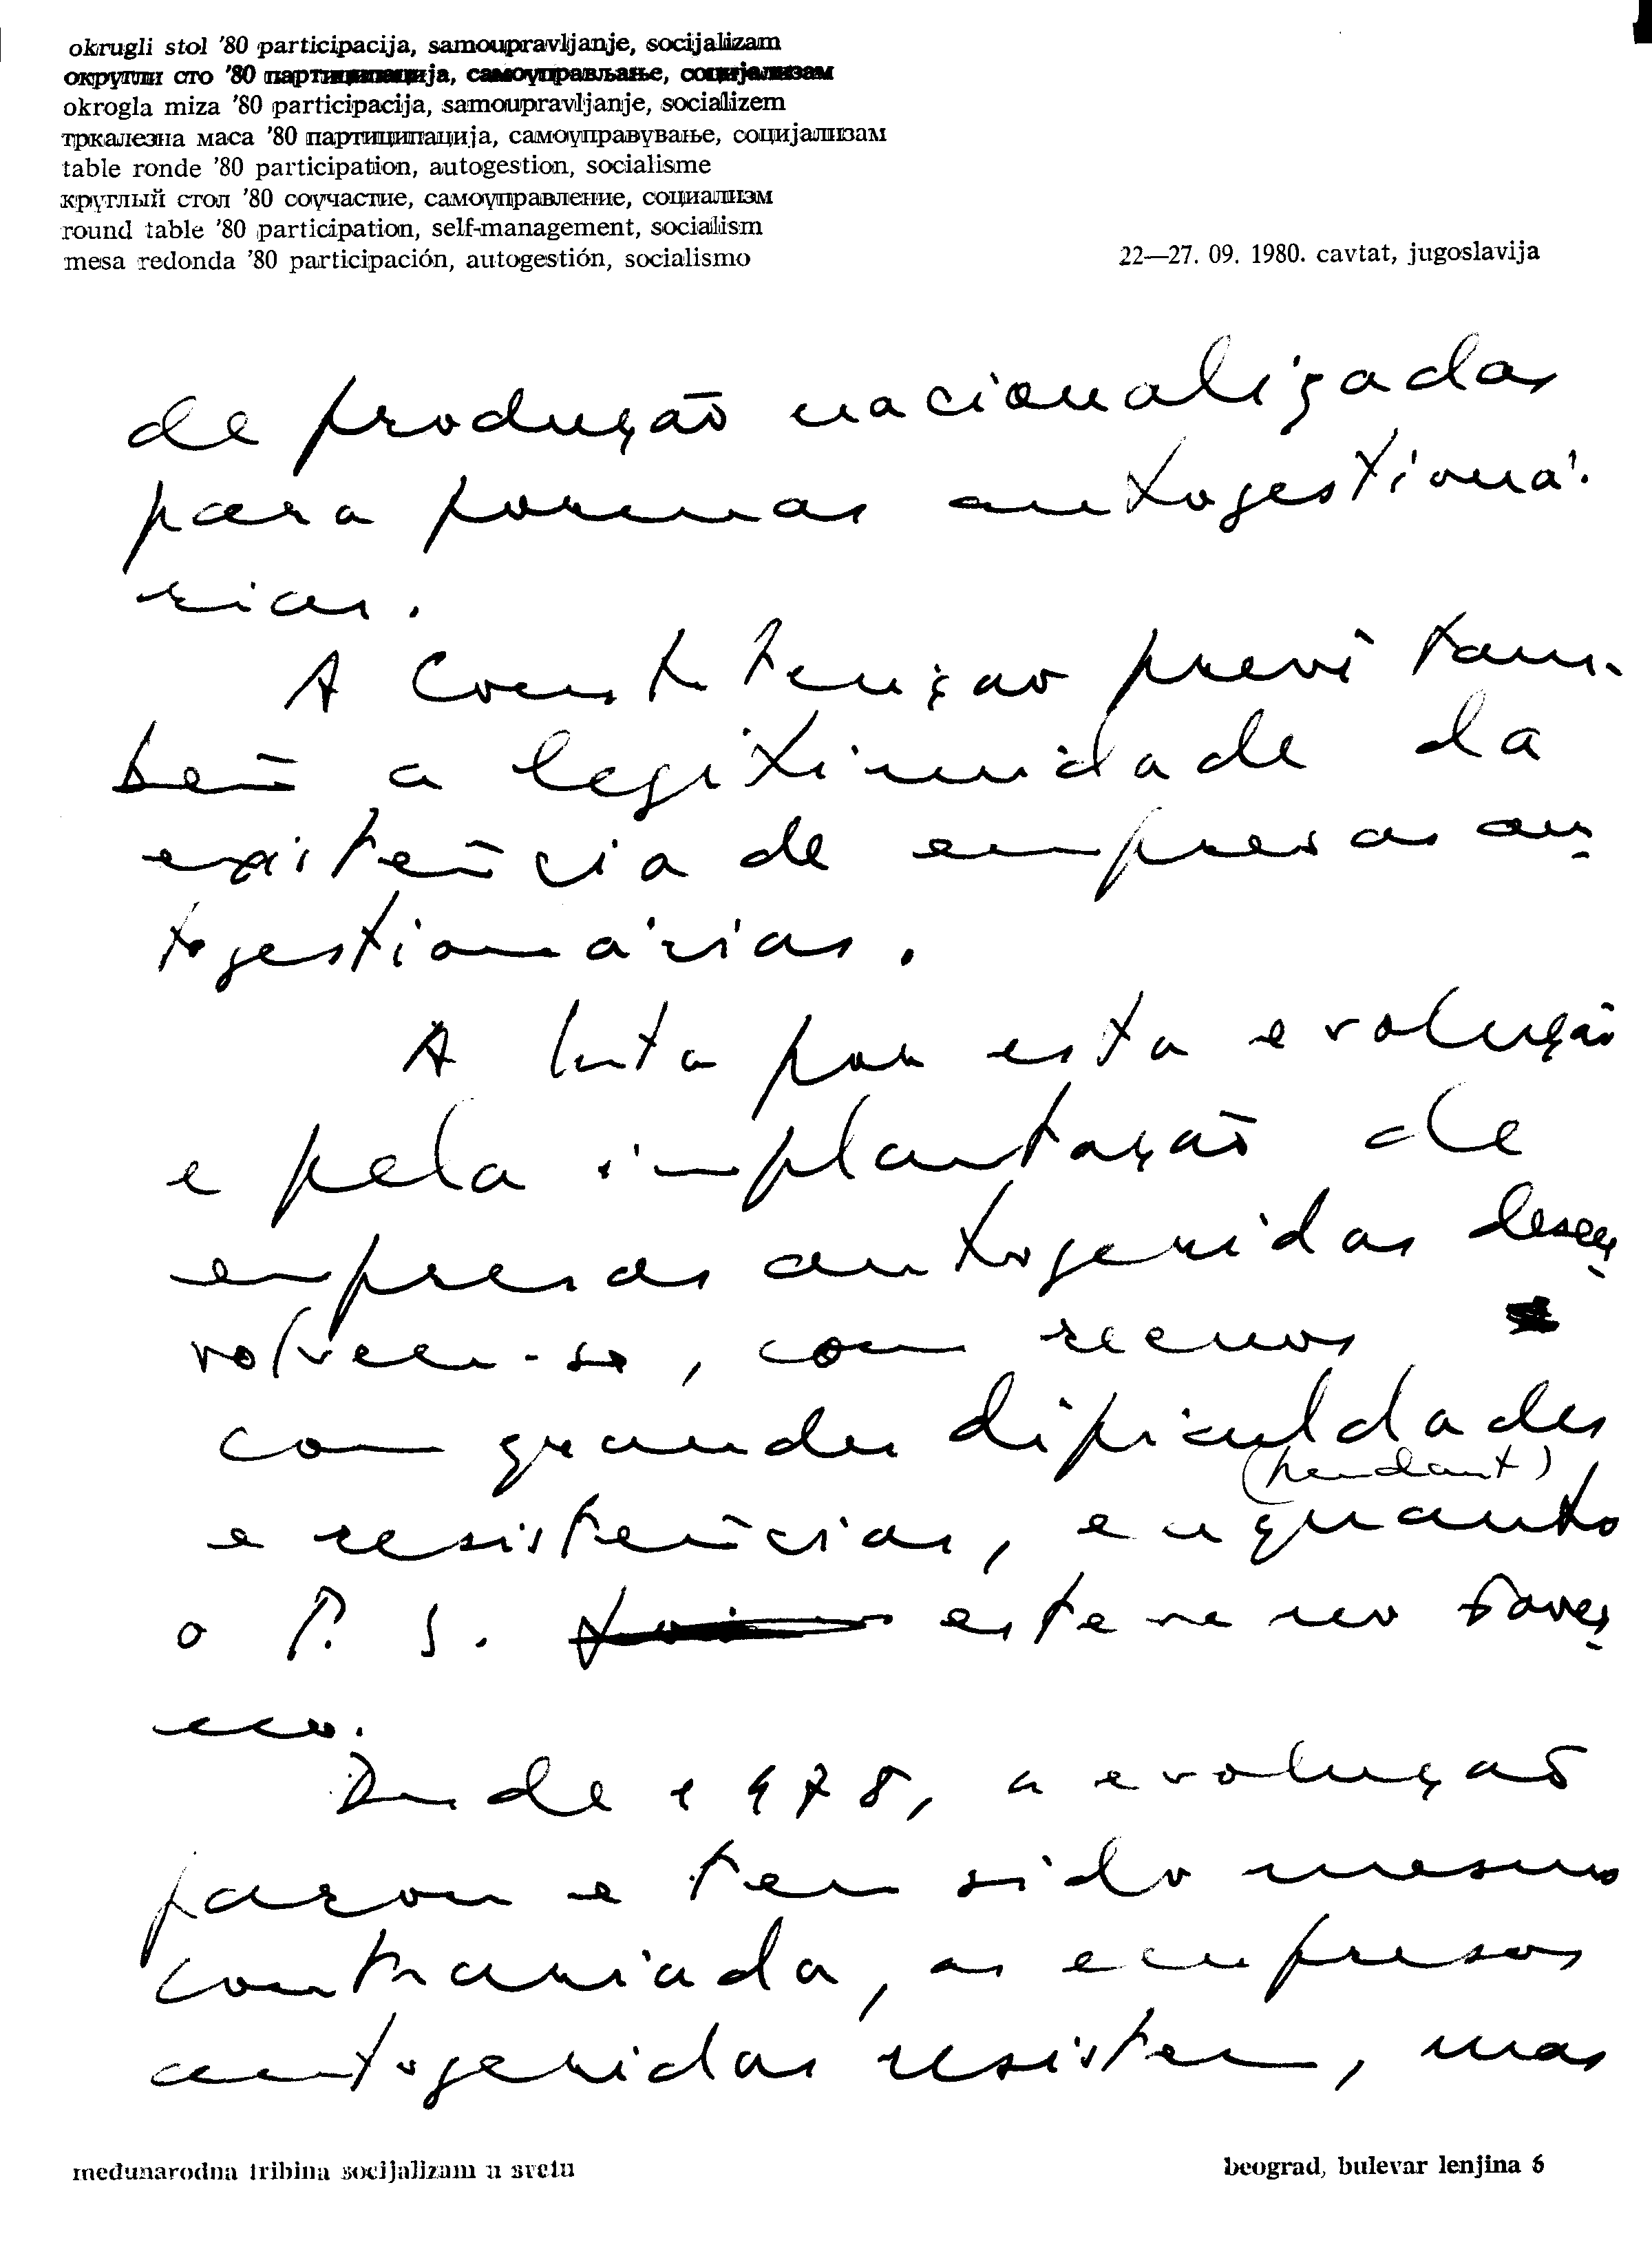 okrugli stol '80 participacija, samoupravljanje, socijalizam
округли сто '80 партиципација, самоуправљање, социјализам
okrogla miza '80 participacija, samoupravljanje, socializem
тркалезна маса '80 партиципација, самоуправување, социјализам
table ronde '80 participation, autogestion, socialisme
круглый стол '80 соучастие, самоуправление, социализм
round table '80 participation, self-management, socialism
mesa redonda '80 participación, autogestión, socialismo
22—27. 09. 1980. cavtat, jugoslavija
de produção nacionalizadas
para formas autogestioná-
rias.
A Constituição prevê tam-
bém a legitimidade da
existência de empresas au-
togestionárias.
A luta por esta evolução
e pela implantação de
empresas autogeridas desen-
volveu-se, com recuos
com grandes dificuldades
(pendant)
e resistências, enquanto
o P. S. esteve no Gover-
no.
Desde 1978, a evolução
parou e tem sido mesmo
contrariada, as empresas
autogeridas resistem, mas
međunarodna tribina socijalizam u svetu
beograd, bulevar lenjina 6